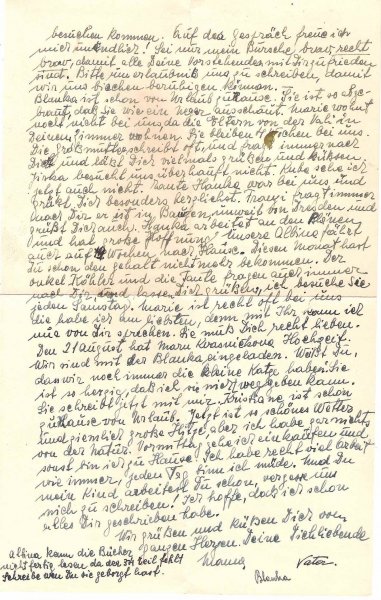 besuchen kommen. Auf das Gespräch freue ich
mich unendlich! Sei nur mein Bursche, brav, recht
brav, damit alle Deine Vorstehenden mit Dir zufrieden
sind. Bitte um erlaubnis uns zu schreiben, damit
wir uns bischen beruhigen können.
Blanka ist schon von Urlaub zuhause. Sie ist so abge-
brant, daß sie wie ein neger ausschaut. Marie wohnt
nicht bei uns da die Eltern von der Vali in
Deinem Zimmer wohnen. Sie bleiben 4 Wochen bei uns.
Die Großmutter schreibt oft und fragt immer nach
Dich und läßt Dich vielmals grüßen und küßsen.
Jirka besucht uns überhaupt nicht. Kuba sehe ich
jetzt auch nicht. Tante Hanka war bei uns und
grüßt Dich besonders herzlichst. Franz fragt immer
nach Dir er ist in Bautzen, unweit von Dresden und
grüßt Dich auch. Hanka arbeitet an den Plänen
und hat große Hoffnung. Unsere Albina fährt
auch auf Wochen nach Hause. Diesen Monat hast
Du schon den gehalt nicht mehr bekommen. Der
onkel Köhler und die Tante fragen auch immer
nach Dir, und lassen Dich grüßen, ich besuche sie
jeden Samstag. Marie ist recht oft bei uns
die habe ich am liebsten, denn mit Ihr kann ich
nur von Dir sprechen. Sie muß Dich recht lieben.
Den 21 august hat Maru Kvasnickova Hochzeit.
Wir sind mit der Blanka eingeladen. Weißt Du,
das wir noch immer die kleine Katze haben. Sie
ist so herzig, daß ich sie nicht weggeben kann.
Sie schreibt jetzt mit mir. Kristiane ist schon
zuhause von Urlaub. Jetzt ist so schönes Wetter
und ziemlich große Hitze, aber ich habe gar nichts
von der Natur. Vormittag gehe ich einkaufen und
sonst bin ich zu Hause. Ich habe recht viel arbeit
wie immer, jeden Tag bin ich müde. Und Du
mein Kind arbeitest Du schon, vergesse uns
nicht zu schreiben! Ich hoffe, daß ich schon
alles Dir geschrieben habe.
Wir grüßen und küßen Dich vom
ganzen Herzen. Deine Dich liebende
Mama, Vater.
Blanka
Albina kann die Bücher
nicht fertig lesen da der 3te Teil fehlt
Schreibe wem Du sie geborgt hast.